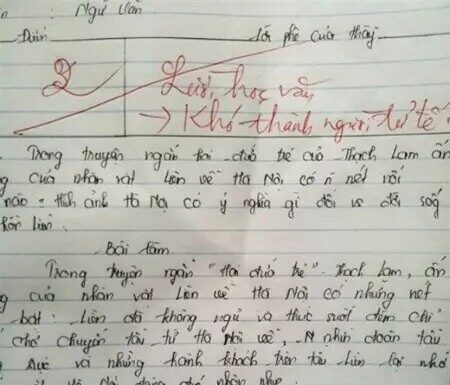 Ngữ Văn
Điểm
Lời phê của thầy
2
Lười học văn
→ Khó thành người tử tế
Trong truyện ngắn hai đứa trẻ của Thạch Lam ấn
của nhân vật Liên về Hà Nội có n nét nổi
nào. Hình ảnh Hà Nội có ý nghĩa gì đối với đời sống
hồn Liên.
Bài làm
Trong truyện ngắn "Hai đứa trẻ" Thạch Lam, ấn
của nhân vật Liên về Hà Nội có những nét
bật. Liên đã không ngủ và thức suốt đêm chỉ
chờ chuyến tàu từ Hà Nội về, nhìn đoàn tàu
và những hành khách trên tàu Liên lại nhớ
Hà Nội